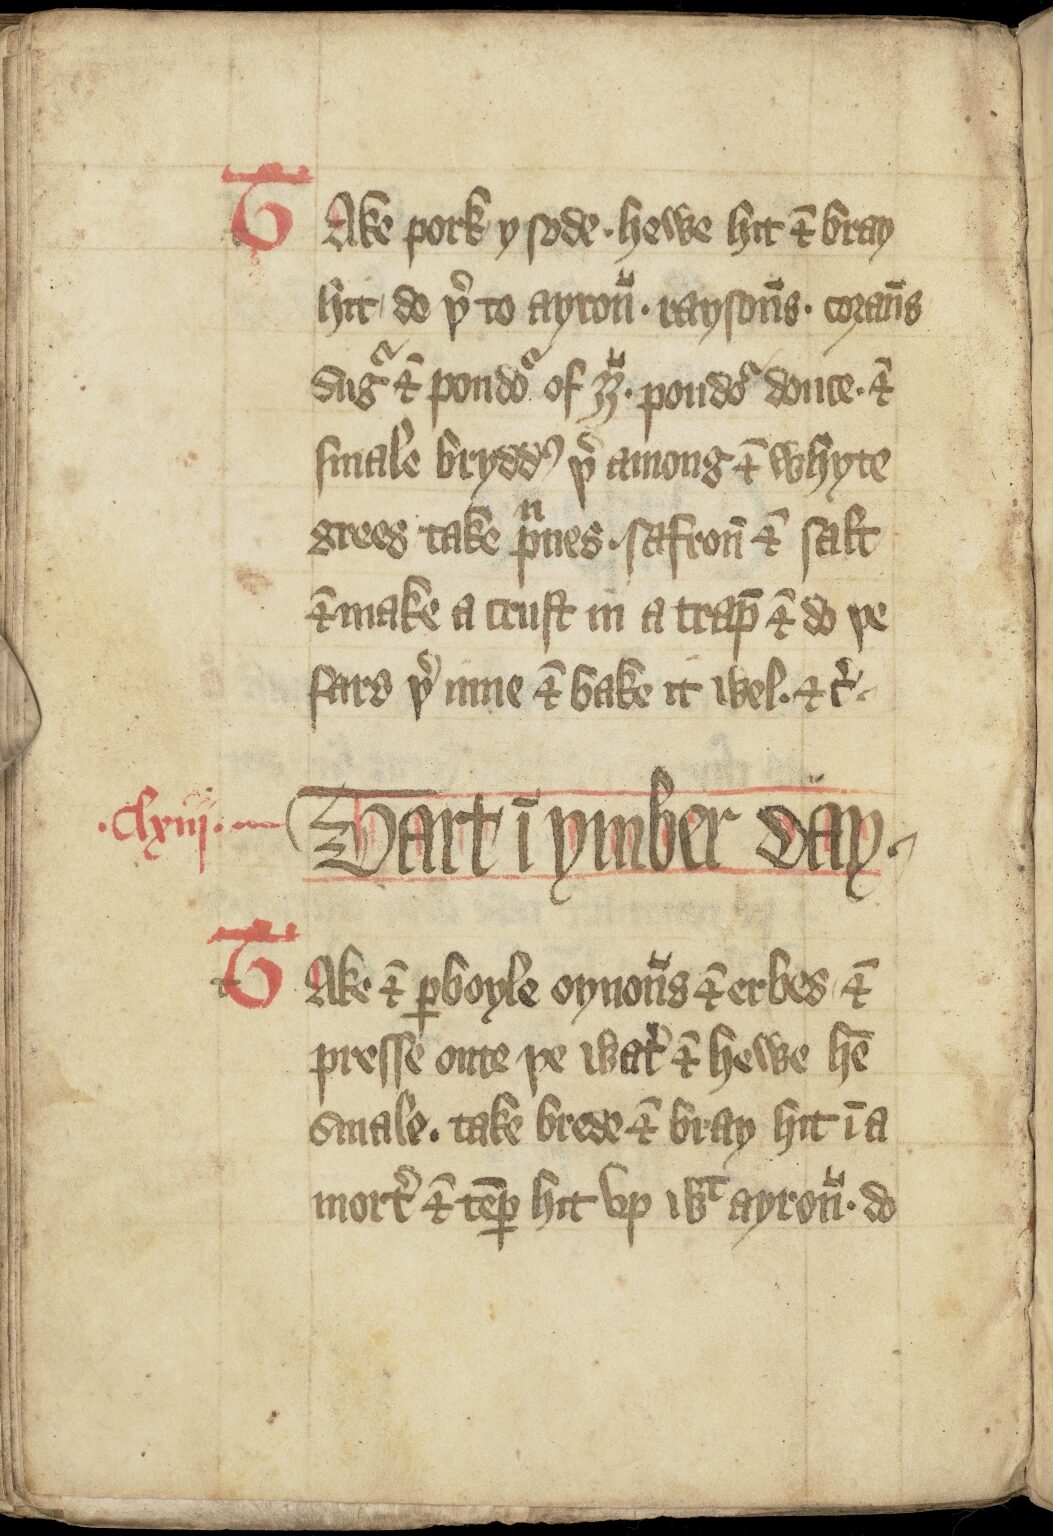 TAke pork y sode · hewe hit & bray
hit do þ͛ to ayroū · raysoūs · coraūs
sugͬ & pondoͬ of gȳ · pondoͬ douce · &
smale bryddꝰ þ͛ among & whyte
grees take pͫnes · safron̄ & salt
& make a crust in a trap̄ & do þe
fars þ͛ inne & bake it wel · & c͛
·clxiij· Tart ī ymber day ·
TAke & ꝑboyle oynoūs & erbes &
presse oute þe wat͛ & hewe hē
smale · take brede & bray hit ī a
mort͛ & tēꝑ hit vp wͭ ayroū · do